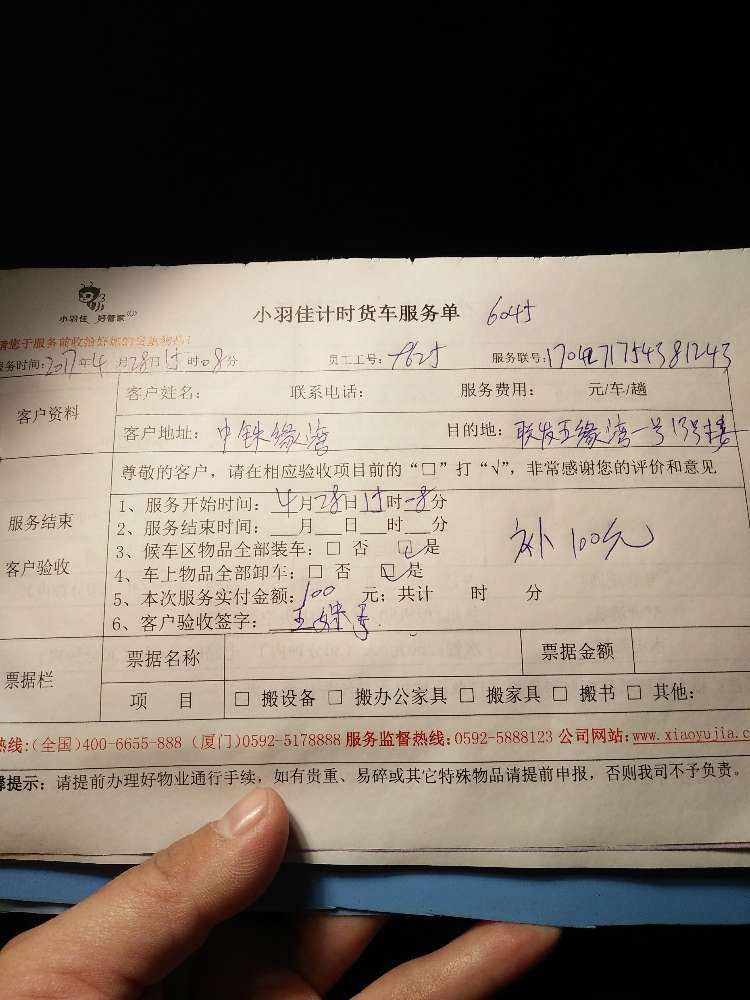 小羽佳 好管家
小羽佳计时货车服务单 6045
请您于服务前收拾好您的贵重物品!
服务时间:2017年4月28日15时08分 员工工号: 9625 服务联号:
客户资料
客户姓名: 联系电话: 服务费用: 元/车/趟
客户地址: 中铁缘湾 目的地: 联发五缘湾一号13号楼
服务结束
客户验收
尊敬的客户,请在相应验收项目前的“□”打“√”,非常感谢您的评价和意见
1、服务开始时间: 4月28日15时08分
2、服务结束时间:___月___日___时___分
3、候车区物品全部装车:□ 否 ☑是
4、车上物品全部卸车:□ 否 ☑是
补100元
5、本次服务实付金额:100 元; 共计 时 分
6、客户验收签字:
票据栏
票据名称 票据金额
项 目 □ 搬设备 □ 搬办公家具 □ 搬家具 □ 搬书 □ 其他:
热线:(全国)400-6655-888 (厦门)0592-5178888 服务监督热线:0592-5888123 公司网站:www.xiaoyujia.c
馨提示:请提前办理好物业通行手续,如有贵重、易碎或其它特殊物品请提前申报,否则我司不予负责。